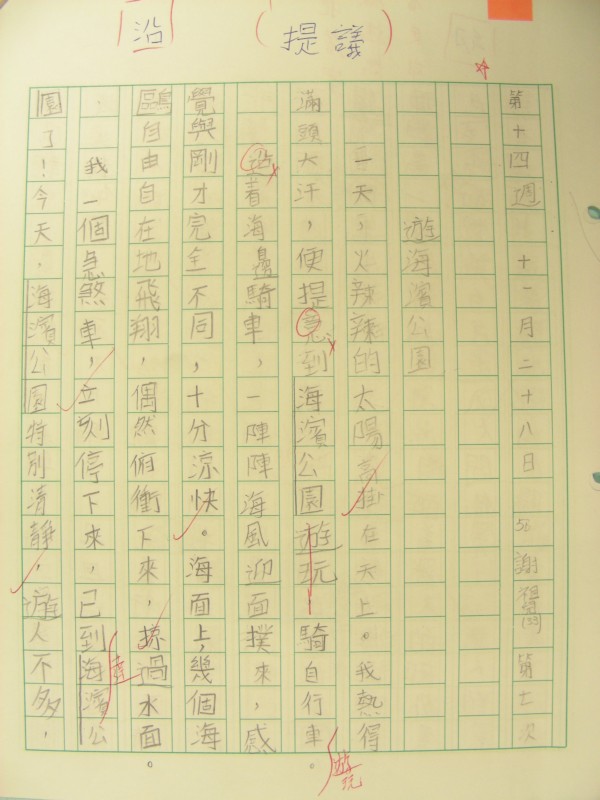 沿
(提議)
第十四週 十一月二十八日 5E 謝 (33) 第七次
遊海濱公園
一天，火辣辣的太陽高掛在天上。我熱得
滿頭大汗，便提意到海濱公園遊玩—騎自行車。
遊玩
沿著海邊騎車，一陣陣海風迎面撲來，感
覺與剛才完全不同，十分涼快。海面上，幾個海
鷗自由自在地飛翔，偶然俯衝下來，掠過水面。
我一個急煞車，立刻停下來，已到海濱公
達
園了！今天，海濱公園特別清靜，遊人不多，